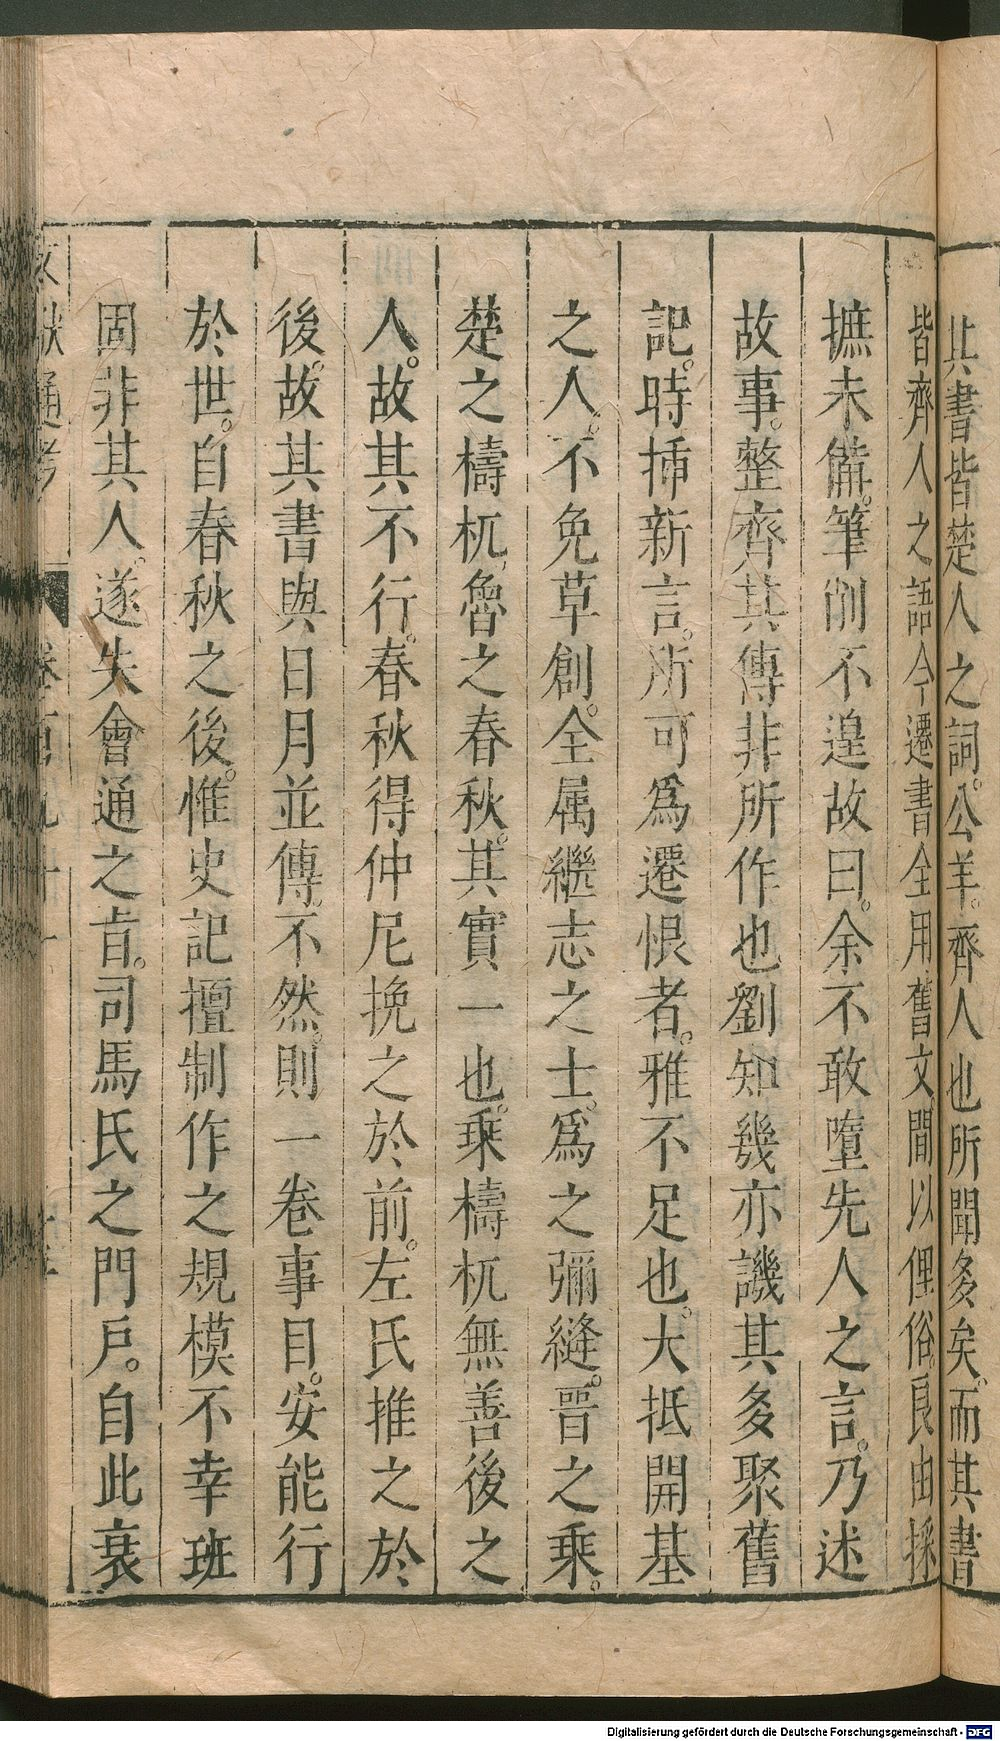 其書皆楚人之詞。公羊。齊人也所聞多矣。而其書
皆齊人之語今遷書全用舊文間以俚俗。良由採
摭未備。筆削不遑故曰。余不敢墮先人之言。乃述
故事。整齊其傳非所作也劉知幾亦譏其多聚舊
記。時揷新言。所可爲遷恨者。雅不足也。大抵開基
之人。不免草創。全属繼志之士。爲之彌縫。晉之乘。
楚之檮杌,魯之春秋。其實一也。乘檮杌無善後之
人。故其不行。春秋得仲尼挽之於前。左氏推之於
後。故其書與日月並傳。不然。則一卷事目。安能行
於世。自春秋之後。惟史記擅制作之規模不幸班
固非其人。遂失會通之旨。司馬氏之門戶。自此衰
Digitalisierung gefördert durch die Deutsche Forschungsgemeinschaft - DFG